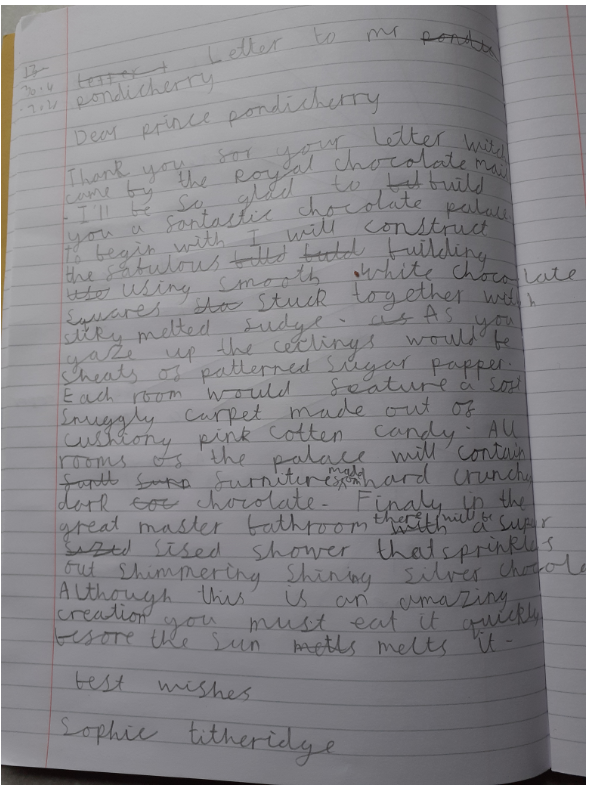 Letter to mr
pondicherry
Dear prince pondicherry
Thank you for your letter witch
came by the Royal chocolate mail
. I'll be so glad to build
you a fantastic chocolate palace
To begin with I will construct
the fabulous building
using smooth white chocolate
squares stuck together with
sticky melted fudge. As you
gaze up the ceilings would be
sheats of patterned sugar papper.
Each room would feature a soft
snuggly carpet made out of
cushiony pink cotten candy. All
rooms of the palace will contain
furniture made from hard crunchy
dark chocolate. Finaly in the
great master bathroom there will be a super
sised shower that sprinkles
out shimmering shining silver chocola
Although this is an amazing
creation you must eat it quickly
before the sun melts it.
best wishes
Sophie titheridge